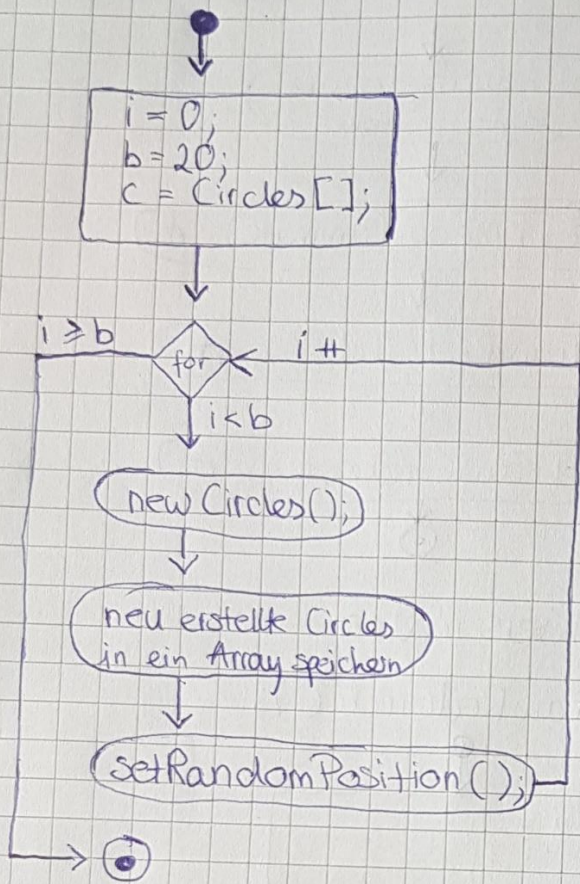 i = 0;
b = 20;
c = Circles [ ];
i ≥ b
for
i ++
i < b
new Circles();
neu erstellte Circles
in ein Array speichern
setRandomPosition();